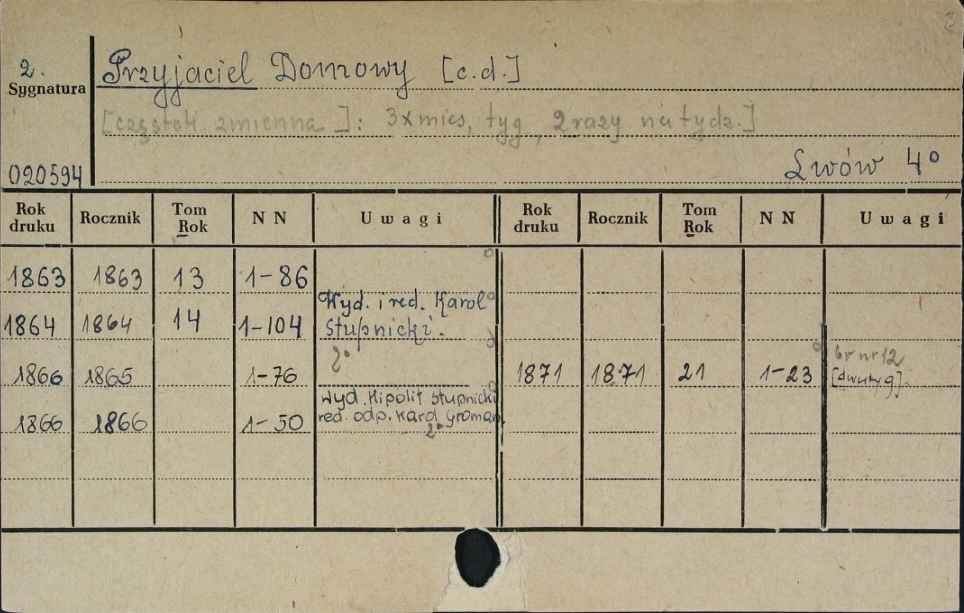 2.
Sygnatura
Przyjaciel Domowy [c.d.]
[częstotl. zmienna]: 3xmies, tyg, 2 razy na tydz.]
020594
Lwów 4°
Rok druku Rocznik Tom Rok N N Uwagi Rok druku Rocznik Tom Rok N N Uwagi
1863 1863 13 1-86
Wyd. i red. Karol
1864 1864 14 1-104 Stupnicki.
2°
1866 1865 1-76 1871 1871 21 1-23 br nr 12
[dwutyg].
Wyd. Hipolit Stupnicki
1866 1866 1-50 red. odp. Karol Groman.
2°